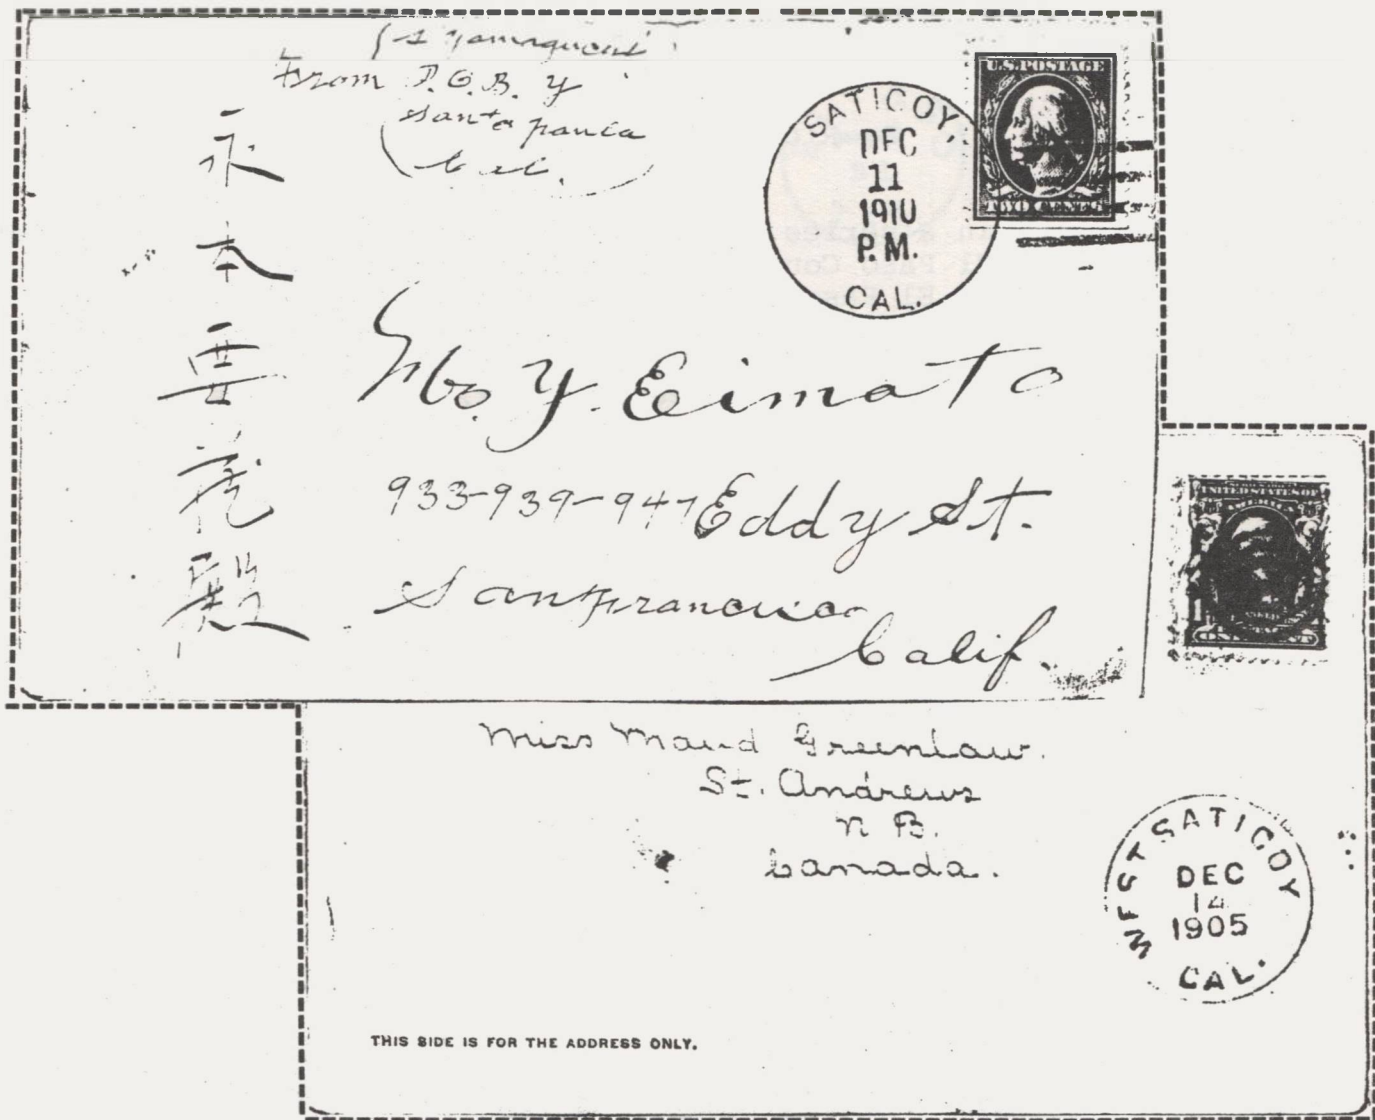 S Yamaguchi
From P.O.B. Y
Santa paula
Cal.
SATICOY,
DEC
11
1910
P.M.
CAL.
U.S. POSTAGE
TWO CENTS
永
本
殿
Mr. Y. Eimoto
933-939-947 Eddy St.
Sanfrancisco
Calif
UNITED STATES OF
Miss Maud Greenlaw.
St. Andrews
N B.
Canada.
WEST SATICOY
DEC
14
1905
CAL.
THIS SIDE IS FOR THE ADDRESS ONLY.